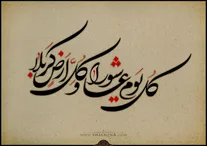 كل يوم عاشورا و كل ارض كربلا